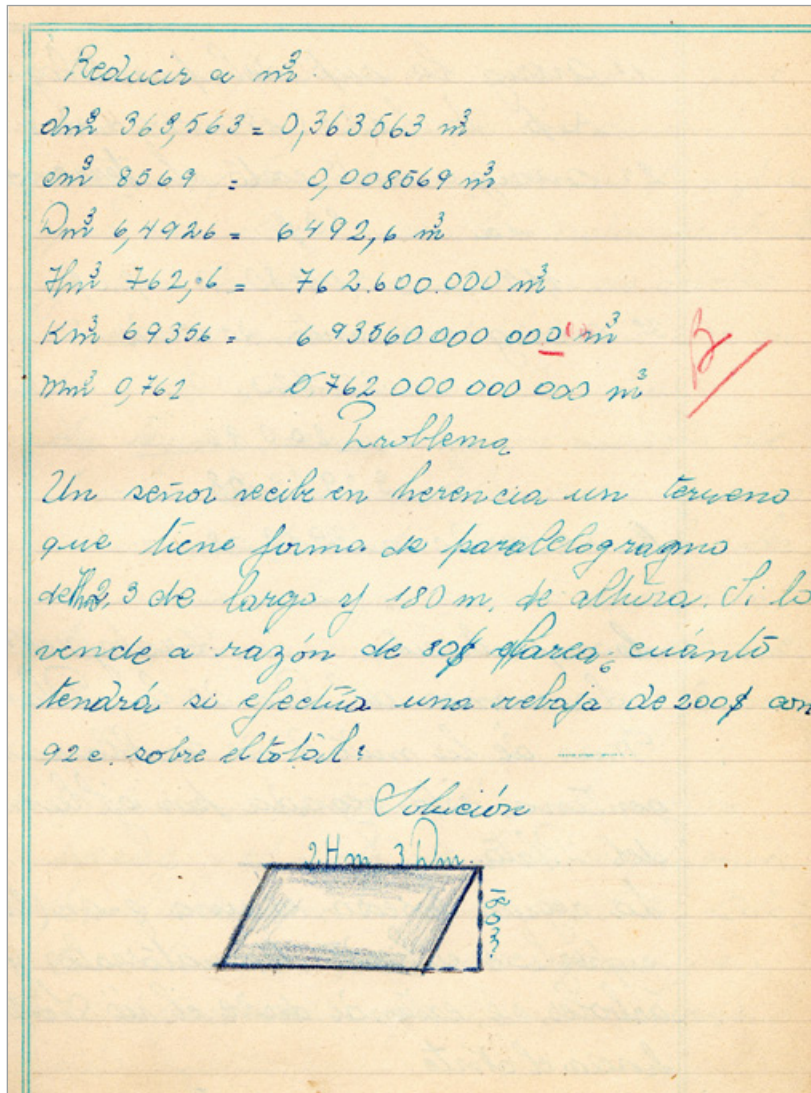 Reducir a m³.
dm³ 363,563 = 0,363563 m³
cm³ 8569 = 0,008569 m³
Dm³ 6,4926 = 6492,6 m³
Hm³ 762,6 = 762.600.000 m³
Km³ 69356 = 693560000 000 m³
Mm³ 0,762 0.762 000 000 000 m³
B
Problema
Un señor recibe en herencia un terreno
que tiene forma de paralelogragmo
de Hm 2,3 de largo y 180 m. de altura. Si lo
vende a razón de 80$ el área; cuánto
tendrá si efectúa una rebaja de 200$ con
92 c. sobre el total:
Solución
2 Hm 3 Dm.
180 m.